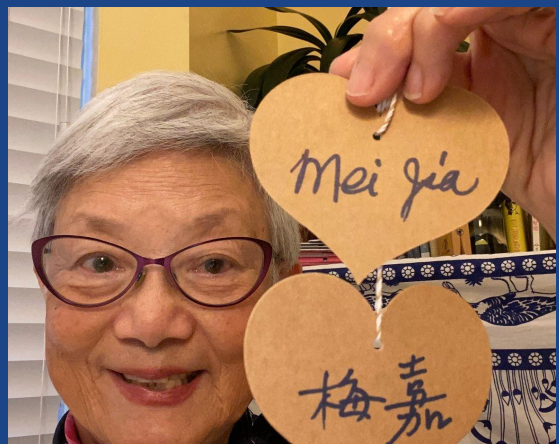 Mei Jia
梅嘉